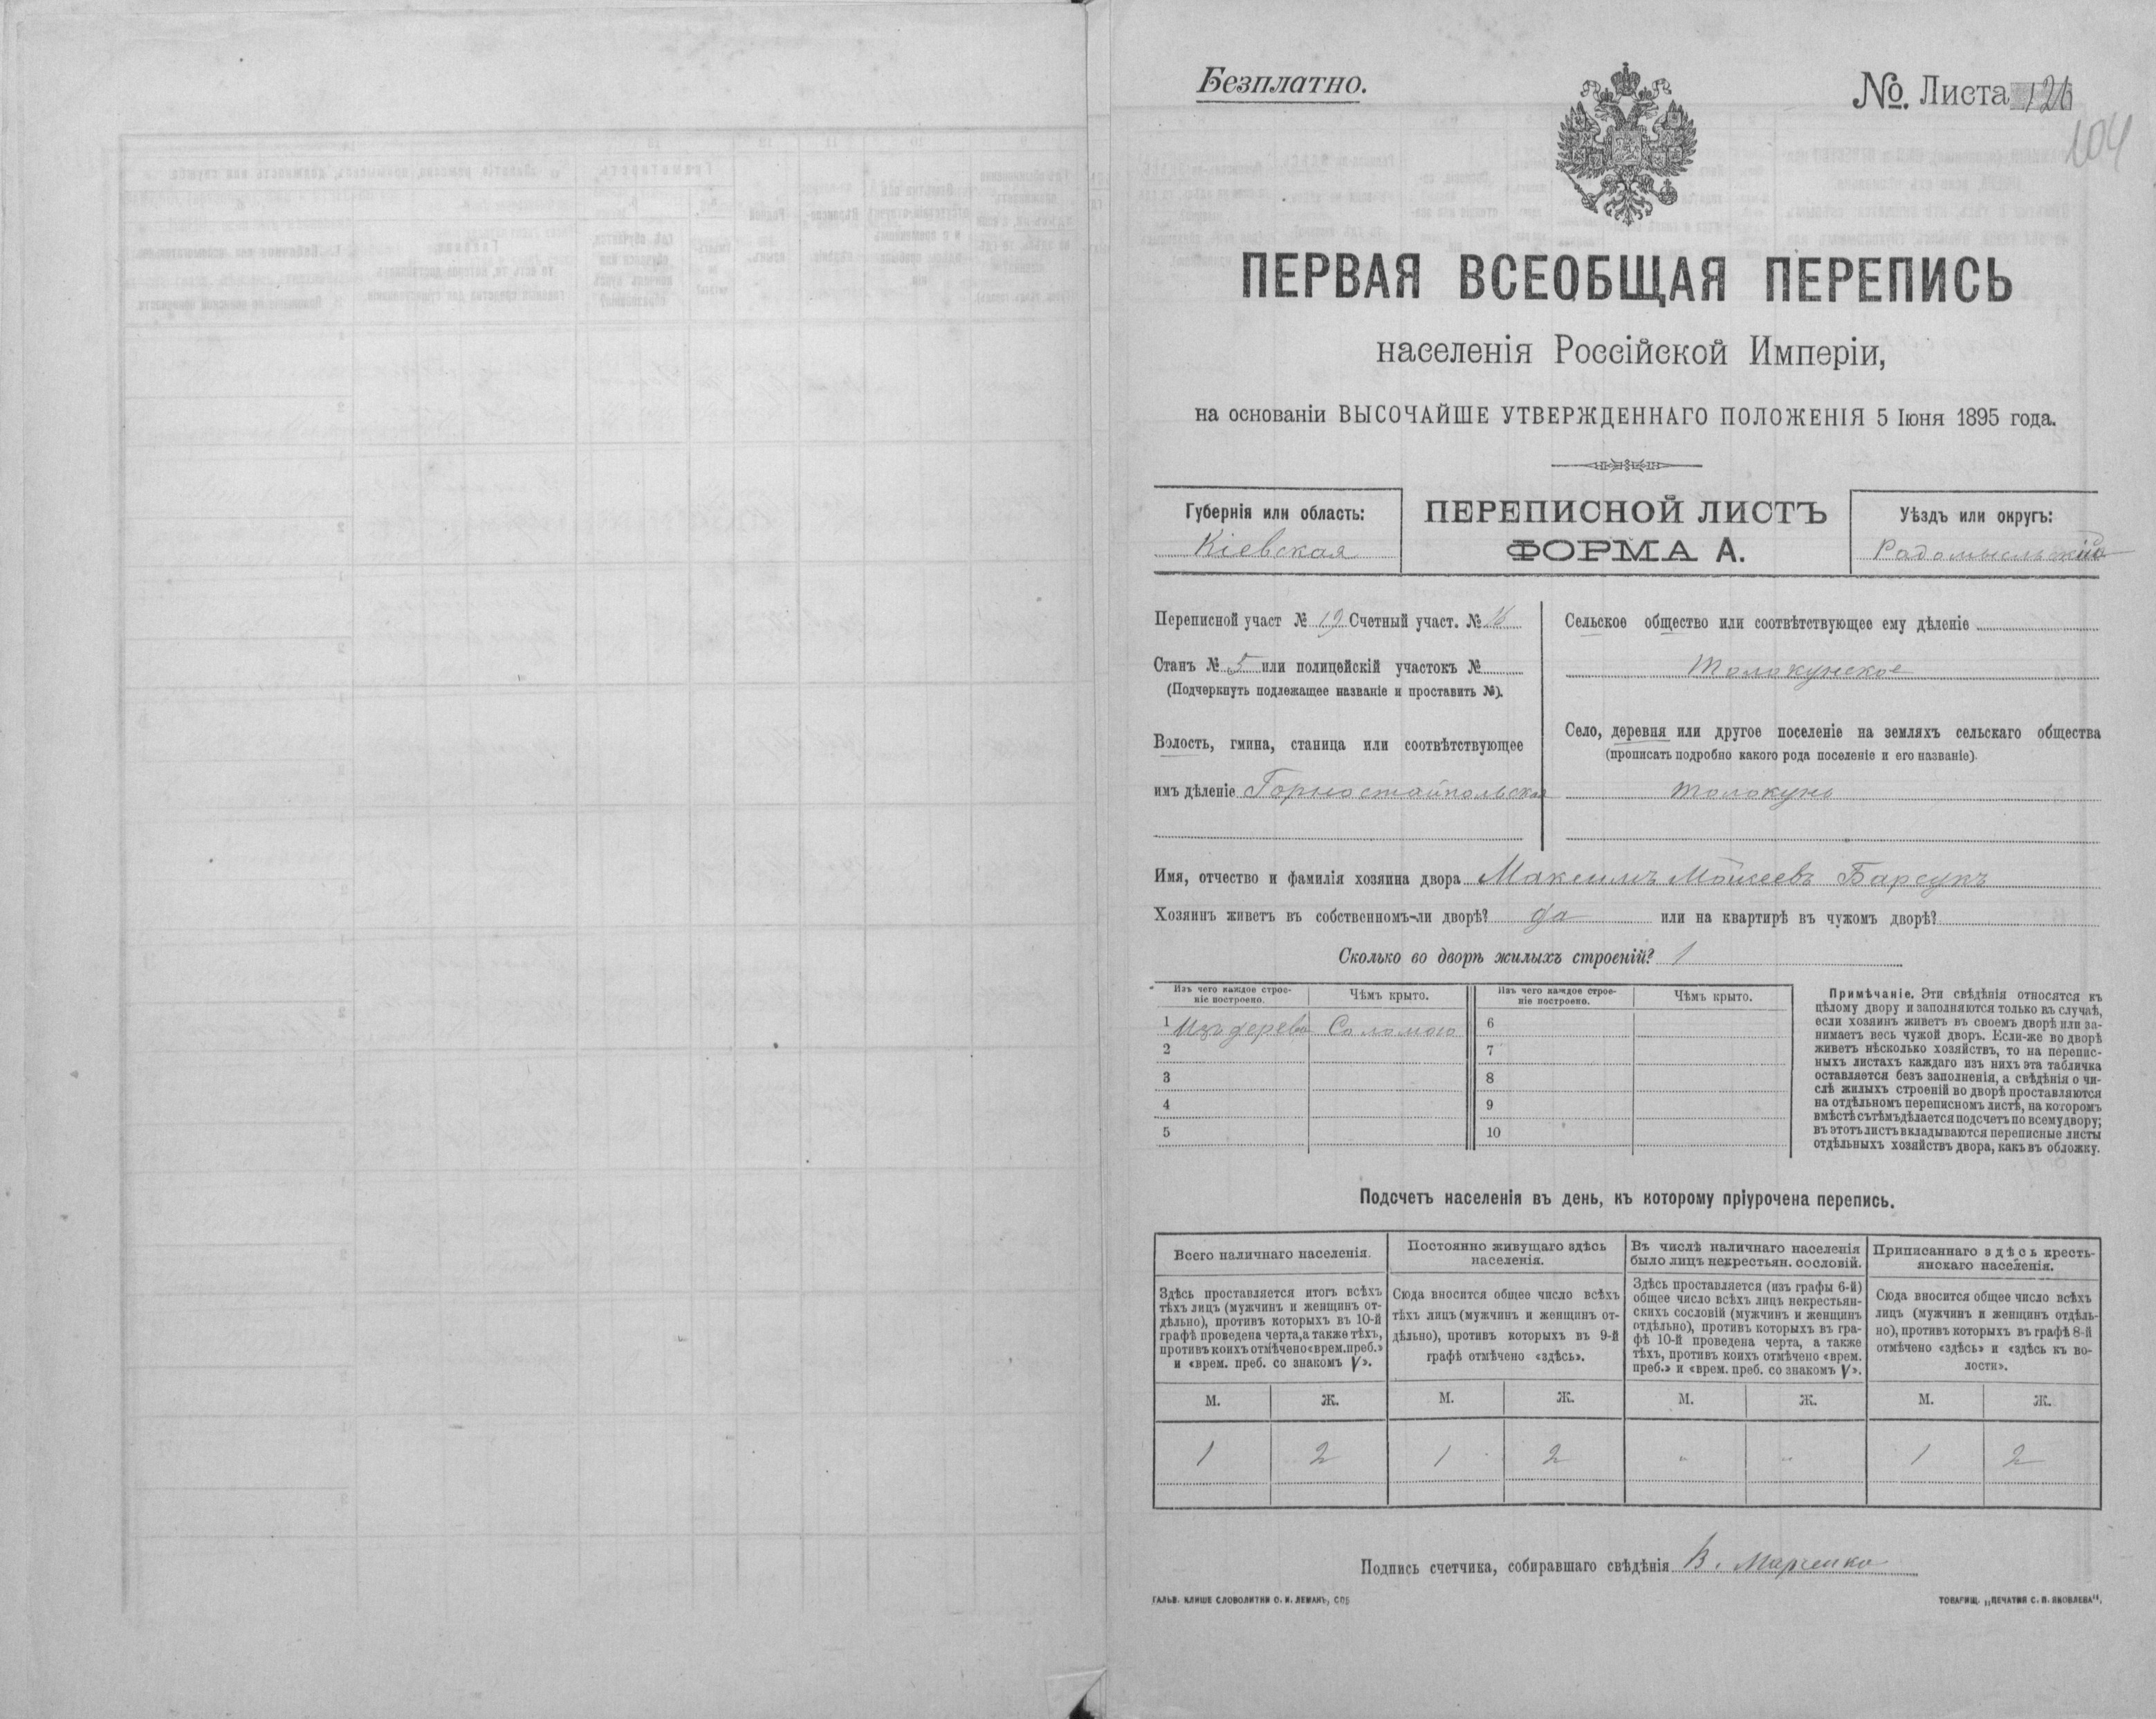 Безплатно.
№ Листа 126
104
ПЕРВАЯ ВСЕОБЩАЯ ПЕРЕПИСЬ
населенія Россійской Имперіи,
на основаніи ВЫСОЧАЙШЕ УТВЕРЖДЕННАГО ПОЛОЖЕНІЯ 5 Іюня 1895 года.
Губернія или область:
Кіевская
ПЕРЕПИСНОЙ ЛИСТЪ
ФОРМА А.
Уѣздъ или округъ:
Радомысльскій
Переписной участ № 19 Счетный участ. №
Станъ № 5 или полицейскій участокъ №
(Подчеркнуть подлежащее названіе и проставить №).
Волость, гмина, станица или соотвѣтствующее
имъ дѣленіе Горностайпольская
Сельское общество или соотвѣтствующее ему дѣленіе
Толокунское
Село, деревня или другое поселеніе на земляхъ сельскаго общества
(прописать подробно какого рода поселеніе и его названіе).
Толокунь
Имя, отчество и фамилія хозяина двора Максимъ Мойсеевъ Барсукъ
Хозяинъ живетъ въ собственномъ-ли дворѣ? да или на квартирѣ въ чужомъ дворѣ?
Сколько во дворѣ жилыхъ строеній? 1
Изъ чего каждое строе-
ніе построено.
Чѣмъ крыто.
Изъ чего каждое строе-
ніе построено.
Чѣмъ крыто.
1 Изъ дерева Соломою 6
2 7
3 8
4 9
5 10
Примѣчаніе. Эти свѣдѣнія относятся къ
цѣлому двору и заполняются только въ случаѣ,
если хозяинъ живетъ въ своемъ дворѣ или за-
нимаетъ весь чужой дворъ. Если-же во дворѣ
живетъ нѣсколько хозяйствъ, то на перепис-
ныхъ листахъ каждаго изъ нихъ эта табличка
оставляется безъ заполненія, а свѣдѣнія о чи-
слѣ жилыхъ строеній во дворѣ проставляются
на отдѣльномъ переписномъ листѣ, на которомъ
вмѣстѣ съ тѣмъ дѣлается подсчетъ по всему двору;
въ этотъ листъ вкладываются переписные листы
отдѣльныхъ хозяйствъ двора, какъ въ обложку.
Подсчетъ населенія въ день, къ которому пріурочена перепись.
Всего наличнаго населенія.
Здѣсь проставляется итогъ всѣхъ
тѣхъ лицъ (мужчинъ и женщинъ от-
дѣльно), противъ которыхъ въ 10-й
графѣ проведена черта, а также тѣхъ,
противъ коихъ отмѣчено «врем. преб.»
и «врем. преб. со знакомъ V».
Постоянно живущаго здѣсь
населенія.
Сюда вносится общее число всѣхъ
тѣхъ лицъ (мужчинъ и женщинъ от-
дѣльно), противъ которыхъ въ 9-й
графѣ отмѣчено «здѣсь».
Въ числѣ наличнаго населенія
было лицъ некрестьян. сословій.
Здѣсь проставляется (изъ графы 6-й)
общее число всѣхъ лицъ некрестьян-
скихъ сословій (мужчинъ и женщинъ
отдѣльно), противъ которыхъ въ гра-
фѣ 10-й проведена черта, а также
тѣхъ, противъ коихъ отмѣчено «врем.
преб.» и «врем. преб. со знакомъ V».
Приписаннаго здѣсь кресть-
янскаго населенія.
Сюда вносится общее число всѣхъ
лицъ (мужчинъ и женщинъ отдѣль-
но), противъ которыхъ въ графѣ 8-й
отмѣчено «здѣсь» и «здѣсь къ во-
лости».
М. Ж. М. Ж. М. Ж. М. Ж.
1 2 1 2 " " 1 2
Подпись счетчика, собиравшаго свѣдѣнія В. Марченко
ГАЛЬВ. КЛИШЕ СЛОВОЛИТНИ О. И. ЛЕМАНЪ, СПБ
ТОВАРИЩ. „ПЕЧАТНЯ С. П. ЯКОВЛЕВА",